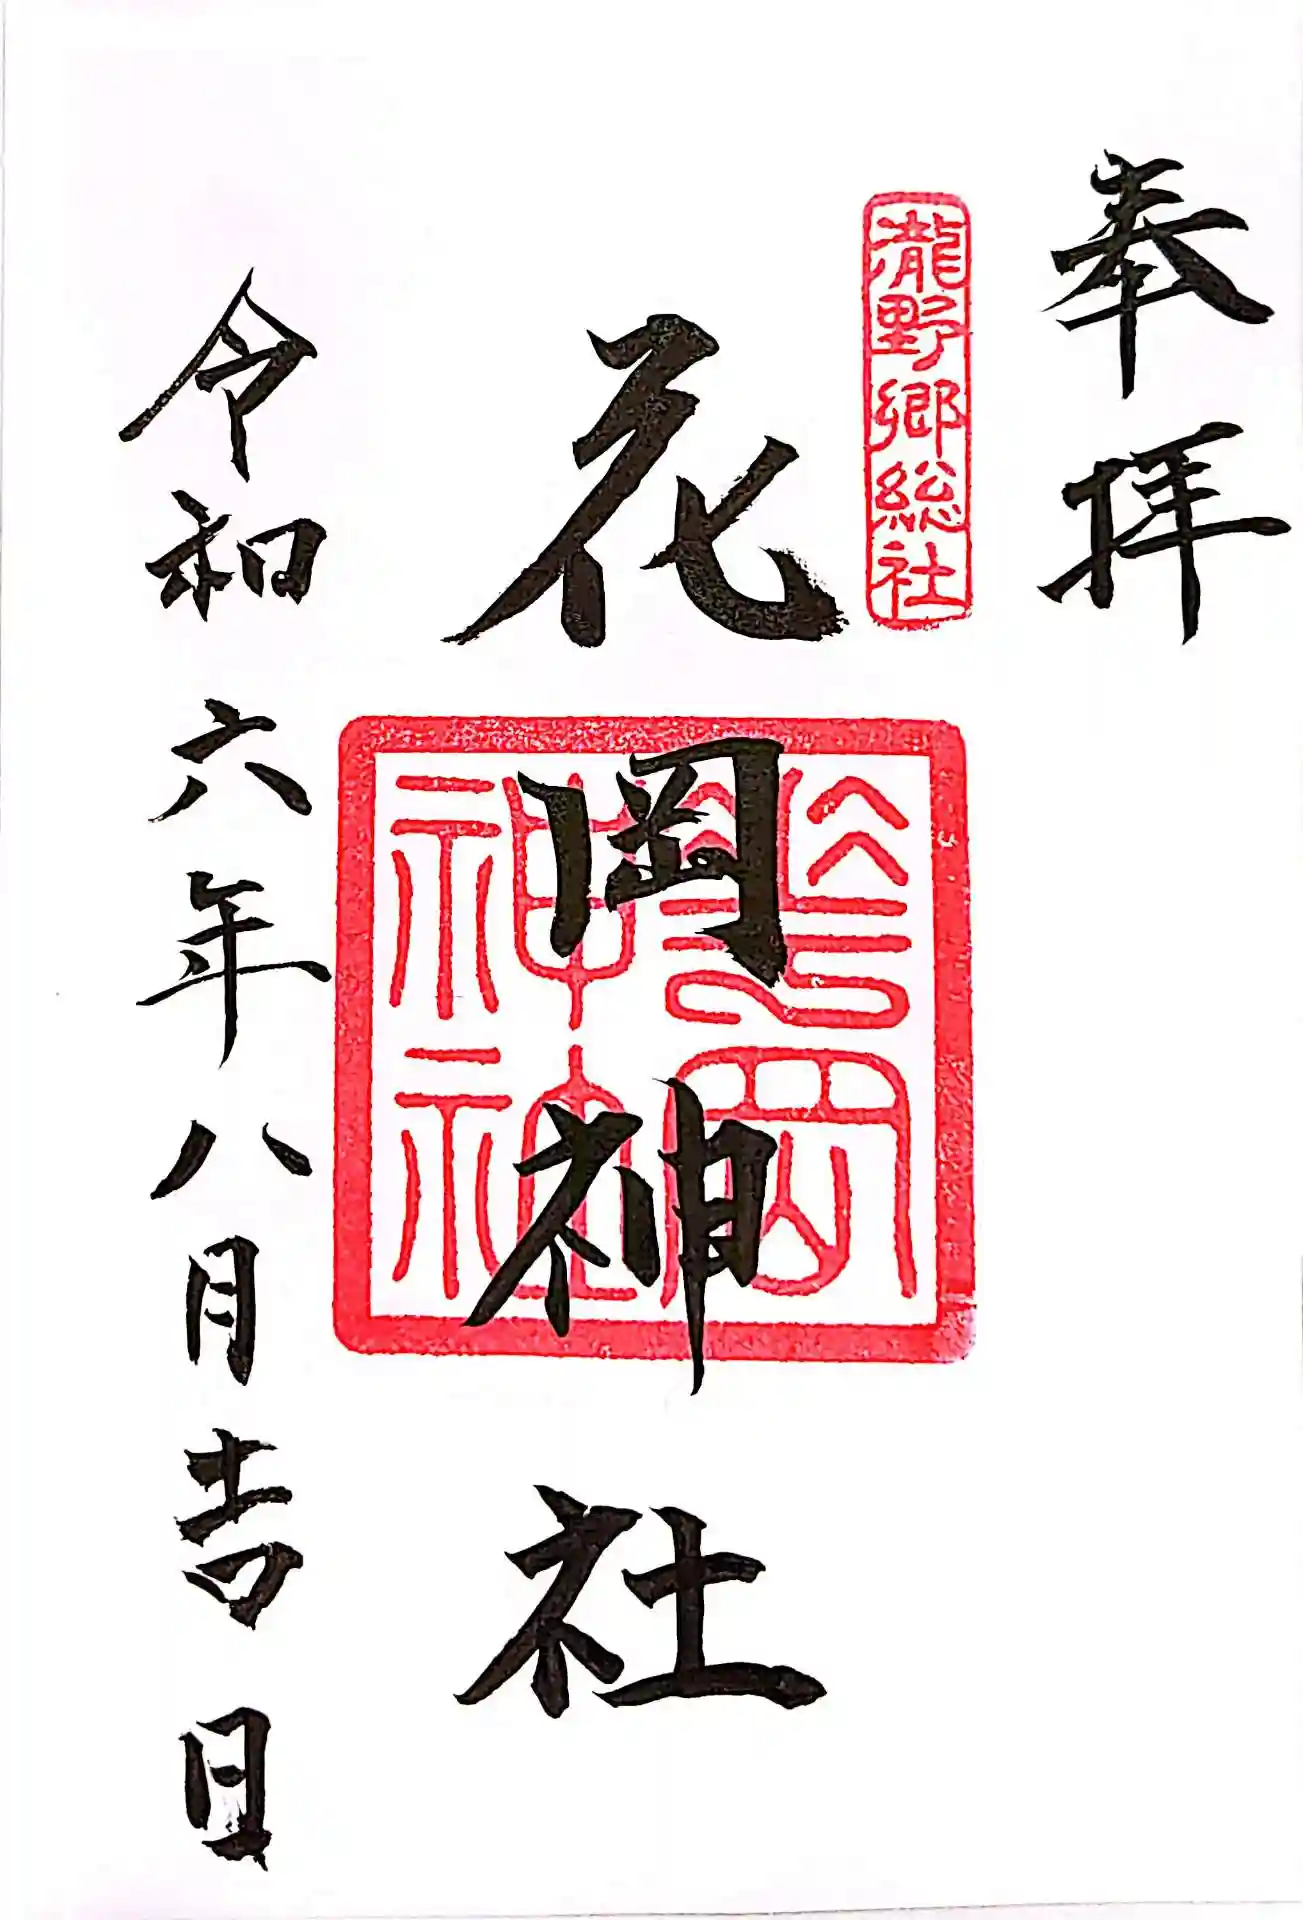 奉拝
瀧野郷総社
花岡神社
花岡
神社
令和六年八月吉日